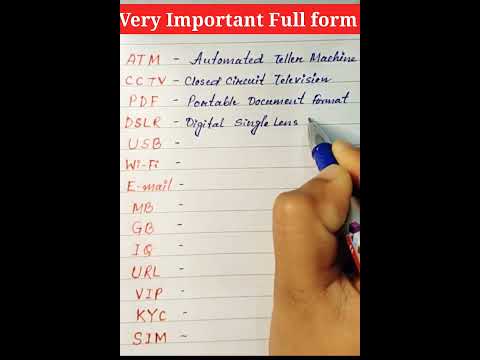 Very Important Full form
ATM - Automated Teller Machine
CCTV - Closed Circuit Television
PDF - Portable Document Format
DSLR - Digital Single Lens
USB -
Wi-Fi -
E-mail -
MB -
GB -
IQ -
URL -
VIP -
KYC -
SIM -